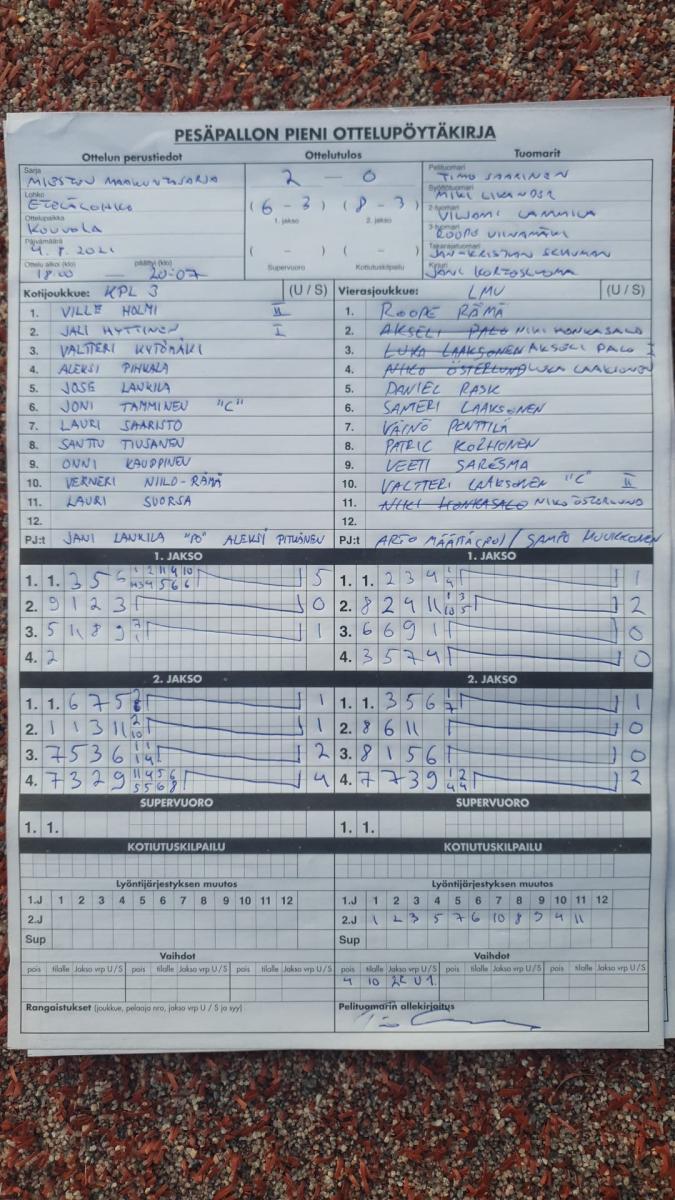 PESÄPALLON PIENI OTTELUPÖYTÄKIRJA
Ottelun perustiedot Ottelutulos Tuomarit
Sarja
MIESTEN MAAKUNTASARJA
Lohko
ETELÄLOHKO
Ottelupaikka
KOUVOLA
Päivämäärä
4.8.2021
Ottelu alkoi (klo) päättyi (klo)
18:00 — 20:07
2 — 0
( 6 - 3 ) ( 8 - 3 )
1. jakso 2. jakso
( - ) ( - )
Supervuoro Kotiutuskilpailu
Pelituomari
TIMO SAARINEN
Syöttötuomari
MIKI LIKANDER
2-tuomari
VILJAMI LAMMILA
3-tuomari
ROOPE VIINAMÄKI
Takarajatuomari
JAN-KRISTIAN SCHUMAN
Kirjuri
JANI KORTOSLUOMA
Kotijoukkue: KPL 3 (U / S)
1. VILLE HOLMI II
2. JALI HYTTINEN I
3. VALTTERI KYTÖMÄKI
4. ALEKSI PIHKALA
5. JOSE LANKILA
6. JONI TAMMINEN "C"
7. LAURI SAARISTO
8. SANTTU TIUSANEN
9. ONNI KAUPPINEN
10. VERNERI NIILO-RÄMÄ
11. LAURI SUORSA
12.
PJ:t JANI LANKILA "PO" ALEKSI PITKÄNEN
Vierasjoukkue: LMU (U / S)
1. ROOPE RÄMÄ
2. AKSELI PALO NIKI HONKASALO
3. LUKA LAAKSONEN AKSELI PALO I
4. NIKO ÖSTERLUND LUKA LAAKSONEN
5. DANIEL RASK
6. SANTERI LAAKSONEN
7. VÄINÖ PONTTILÄ
8. PATRIC KORHONEN
9. VEETI SARESMA
10. VALTTERI LAAKSONEN "C" II
11. NIKI HONKASALO NIKO ÖSTERLUND
12.
PJ:t ARTO MÄÄTTÄ (PO) / SAMPO HUUKKONEN
1. JAKSO
1. 1. 3 5 5
2. 9 1 2 3 0
3. 5 11 8 9 1
4. 2
1. JAKSO
1. 1. 2 3 4 1
2. 8 2 9 11 2
3. 6 6 9 1 0
4. 3 5 7 4 0
2. JAKSO
1. 1. 6 7 5 1
2. 1 1 3 11 1
3. 7 5 3 6 2
4. 7 3 2 9 4
2. JAKSO
1. 1. 3 5 6 1
2. 8 6 11 0
3. 8 1 5 6 0
4. 7 7 3 9 2
SUPERVUORO
1. 1.
SUPERVUORO
1. 1.
KOTIUTUSKILPAILU
KOTIUTUSKILPAILU
Lyöntijärjestyksen muutos
1.J 1 2 3 4 5 6 7 8 9 10 11 12
2.J
Sup
Lyöntijärjestyksen muutos
1.J 1 2 3 4 5 6 7 8 9 10 11 12
2.J 1 2 3 5 7 6 10 8 9 4 11
Sup
Vaihdot
pois tilalle Jakso vrp U / S pois tilalle Jakso vrp U / S pois tilalle Jakso vrp U / S
Vaihdot
pois tilalle Jakso vrp U / S pois tilalle Jakso vrp U / S pois tilalle Jakso vrp U / S
4 10 U 1.
Rangaistukset (joukkue, pelaaja nro, jakso vrp U / S ja syy)
Pelituomarin allekirjoitus